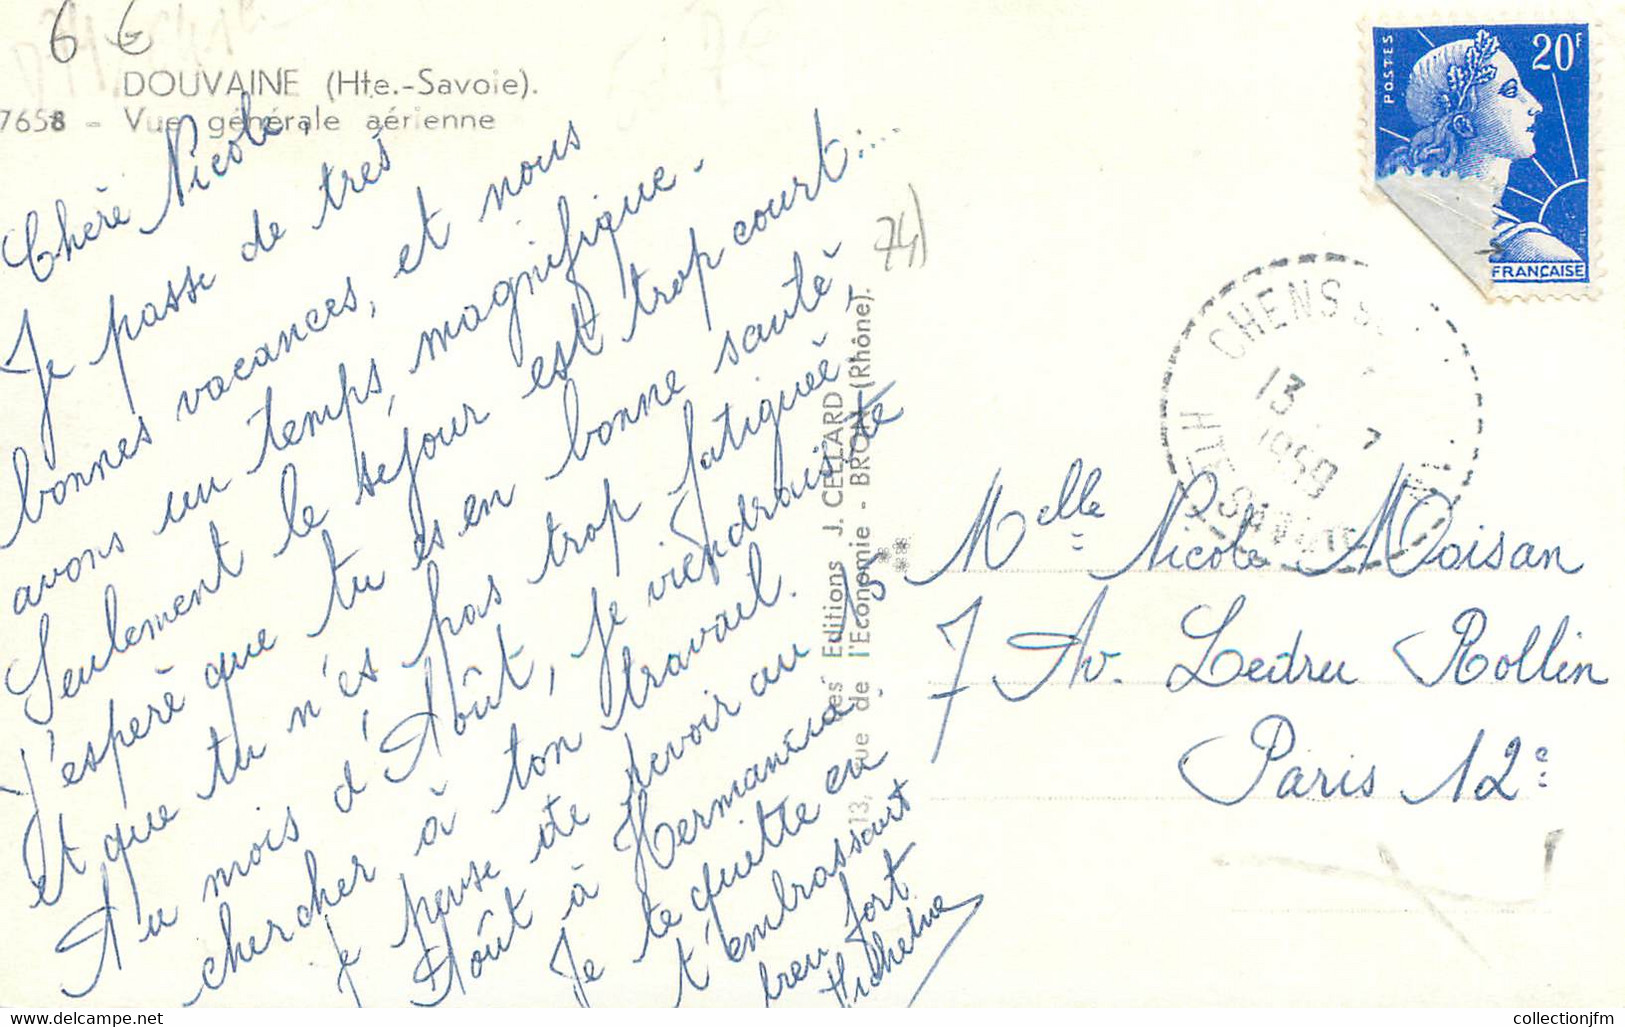 6 €
DOUVAINE (Hte.-Savoie).
7658 - Vue générale aérienne
Chère Nicole,
Je passe de très
bonnes vacances, et nous
avons un temps magnifique.
Seulement le séjour est trop court....
J'espère que tu es en bonne santé,
et que tu n'es pas trop fatiguée,
Au mois d'Août, je viendrais te
chercher à ton travail.
Je pense te revoir au 15
Août à Hermanville
Je te quitte en
t'embrassant
bien fort
Micheline
74)
Les Editions J. CELLARD
13, rue de l'Economie - BRON (Rhône).
POSTES
20F
FRANÇAISE
CHENS
13 7
1959
HTE SAVOIE
Melle Nicole Moisan
7 Av. Ledru Rollin
Paris 12e
collectionjfm